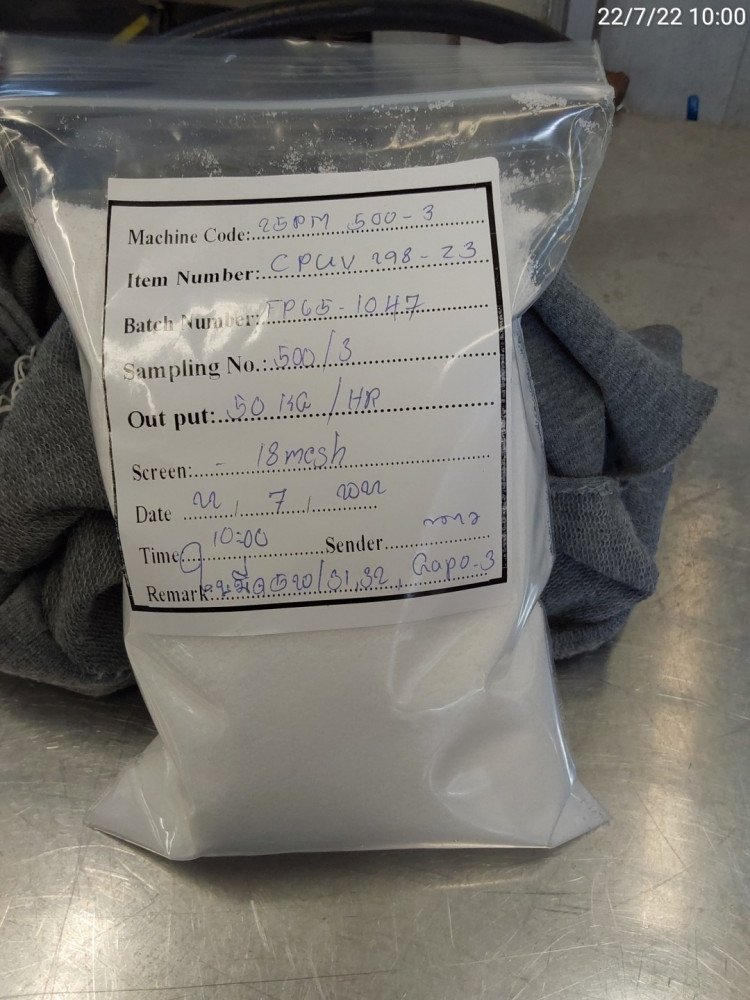 22/7/22 10:00
Machine Code: 25PM 500-3
Item Number: CPUV 298-Z3
Batch Number: FP65-1047
Sampling No.: 500/3
Out put: 50 KG/HR
Screen: - 18 mesh
Date ๒๒ / 7 / ๒๐๒๒
Time 10:00 Sender
Remark: ใบมีด 520/31,32, Gap 0.3